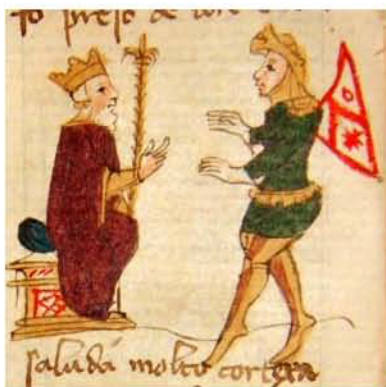 to preso de
saluda molto cortexa